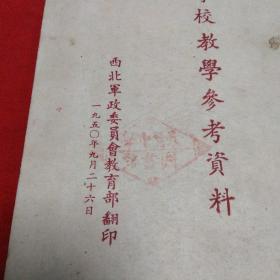 校教學參考資料
西北軍政委員會教育部翻印
一九五〇年九月二十六日